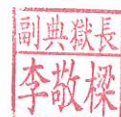 副典獄長
李敬樑